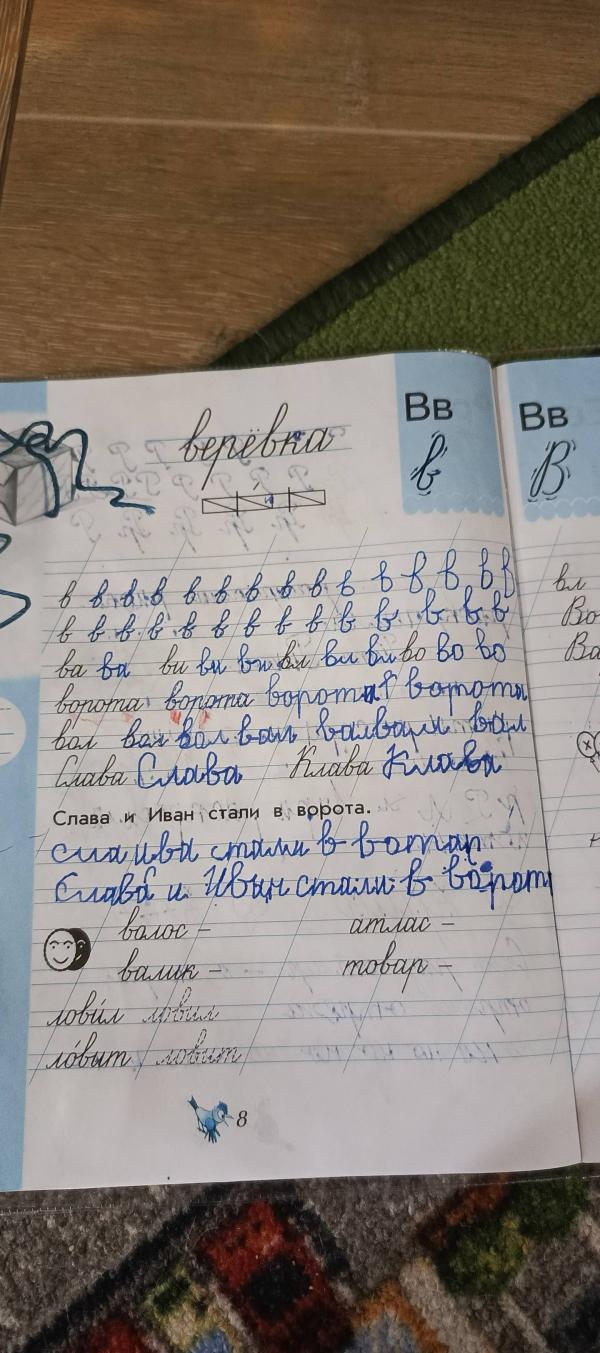 верёвка
Вв
в
Вв
В
в в в в в в в в в в в в в в в
в в в в в в в в в в в в в в в
ва ва ви ви ви вл вл вл во во во
ворота ворота ворота ворота
вол вол вол вол вол вол вол
Слава Слава Клава Клава
Слава и Иван стали в ворота.
стали в
Слава и Иван стали в ворот
волос – атлас –
валик – товар –
ловил ловил
ловит ловит
8
вл
Во
Ва